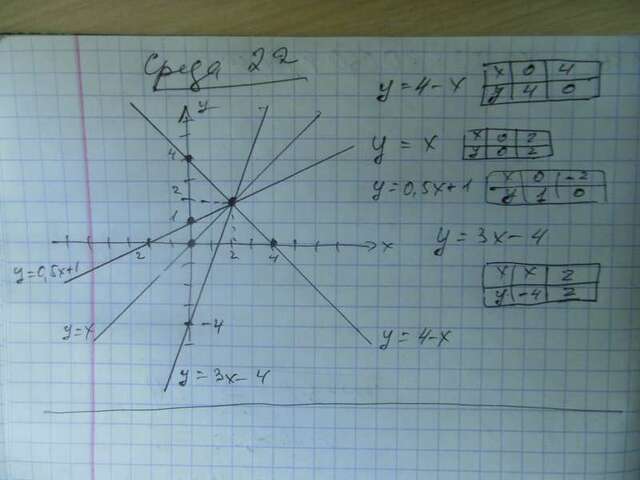 Среда 22
y = 4 - x
x 0 4
y 4 0
y = x
x 0 2
y 0 2
y = 0,5x+1
x 0 -2
y 1 0
y = 3x - 4
x x 2
y -4 2
y
4
2
1
2
2
4
x
-4
y=0,5x+1
y=x
y = 4-x
y = 3x - 4